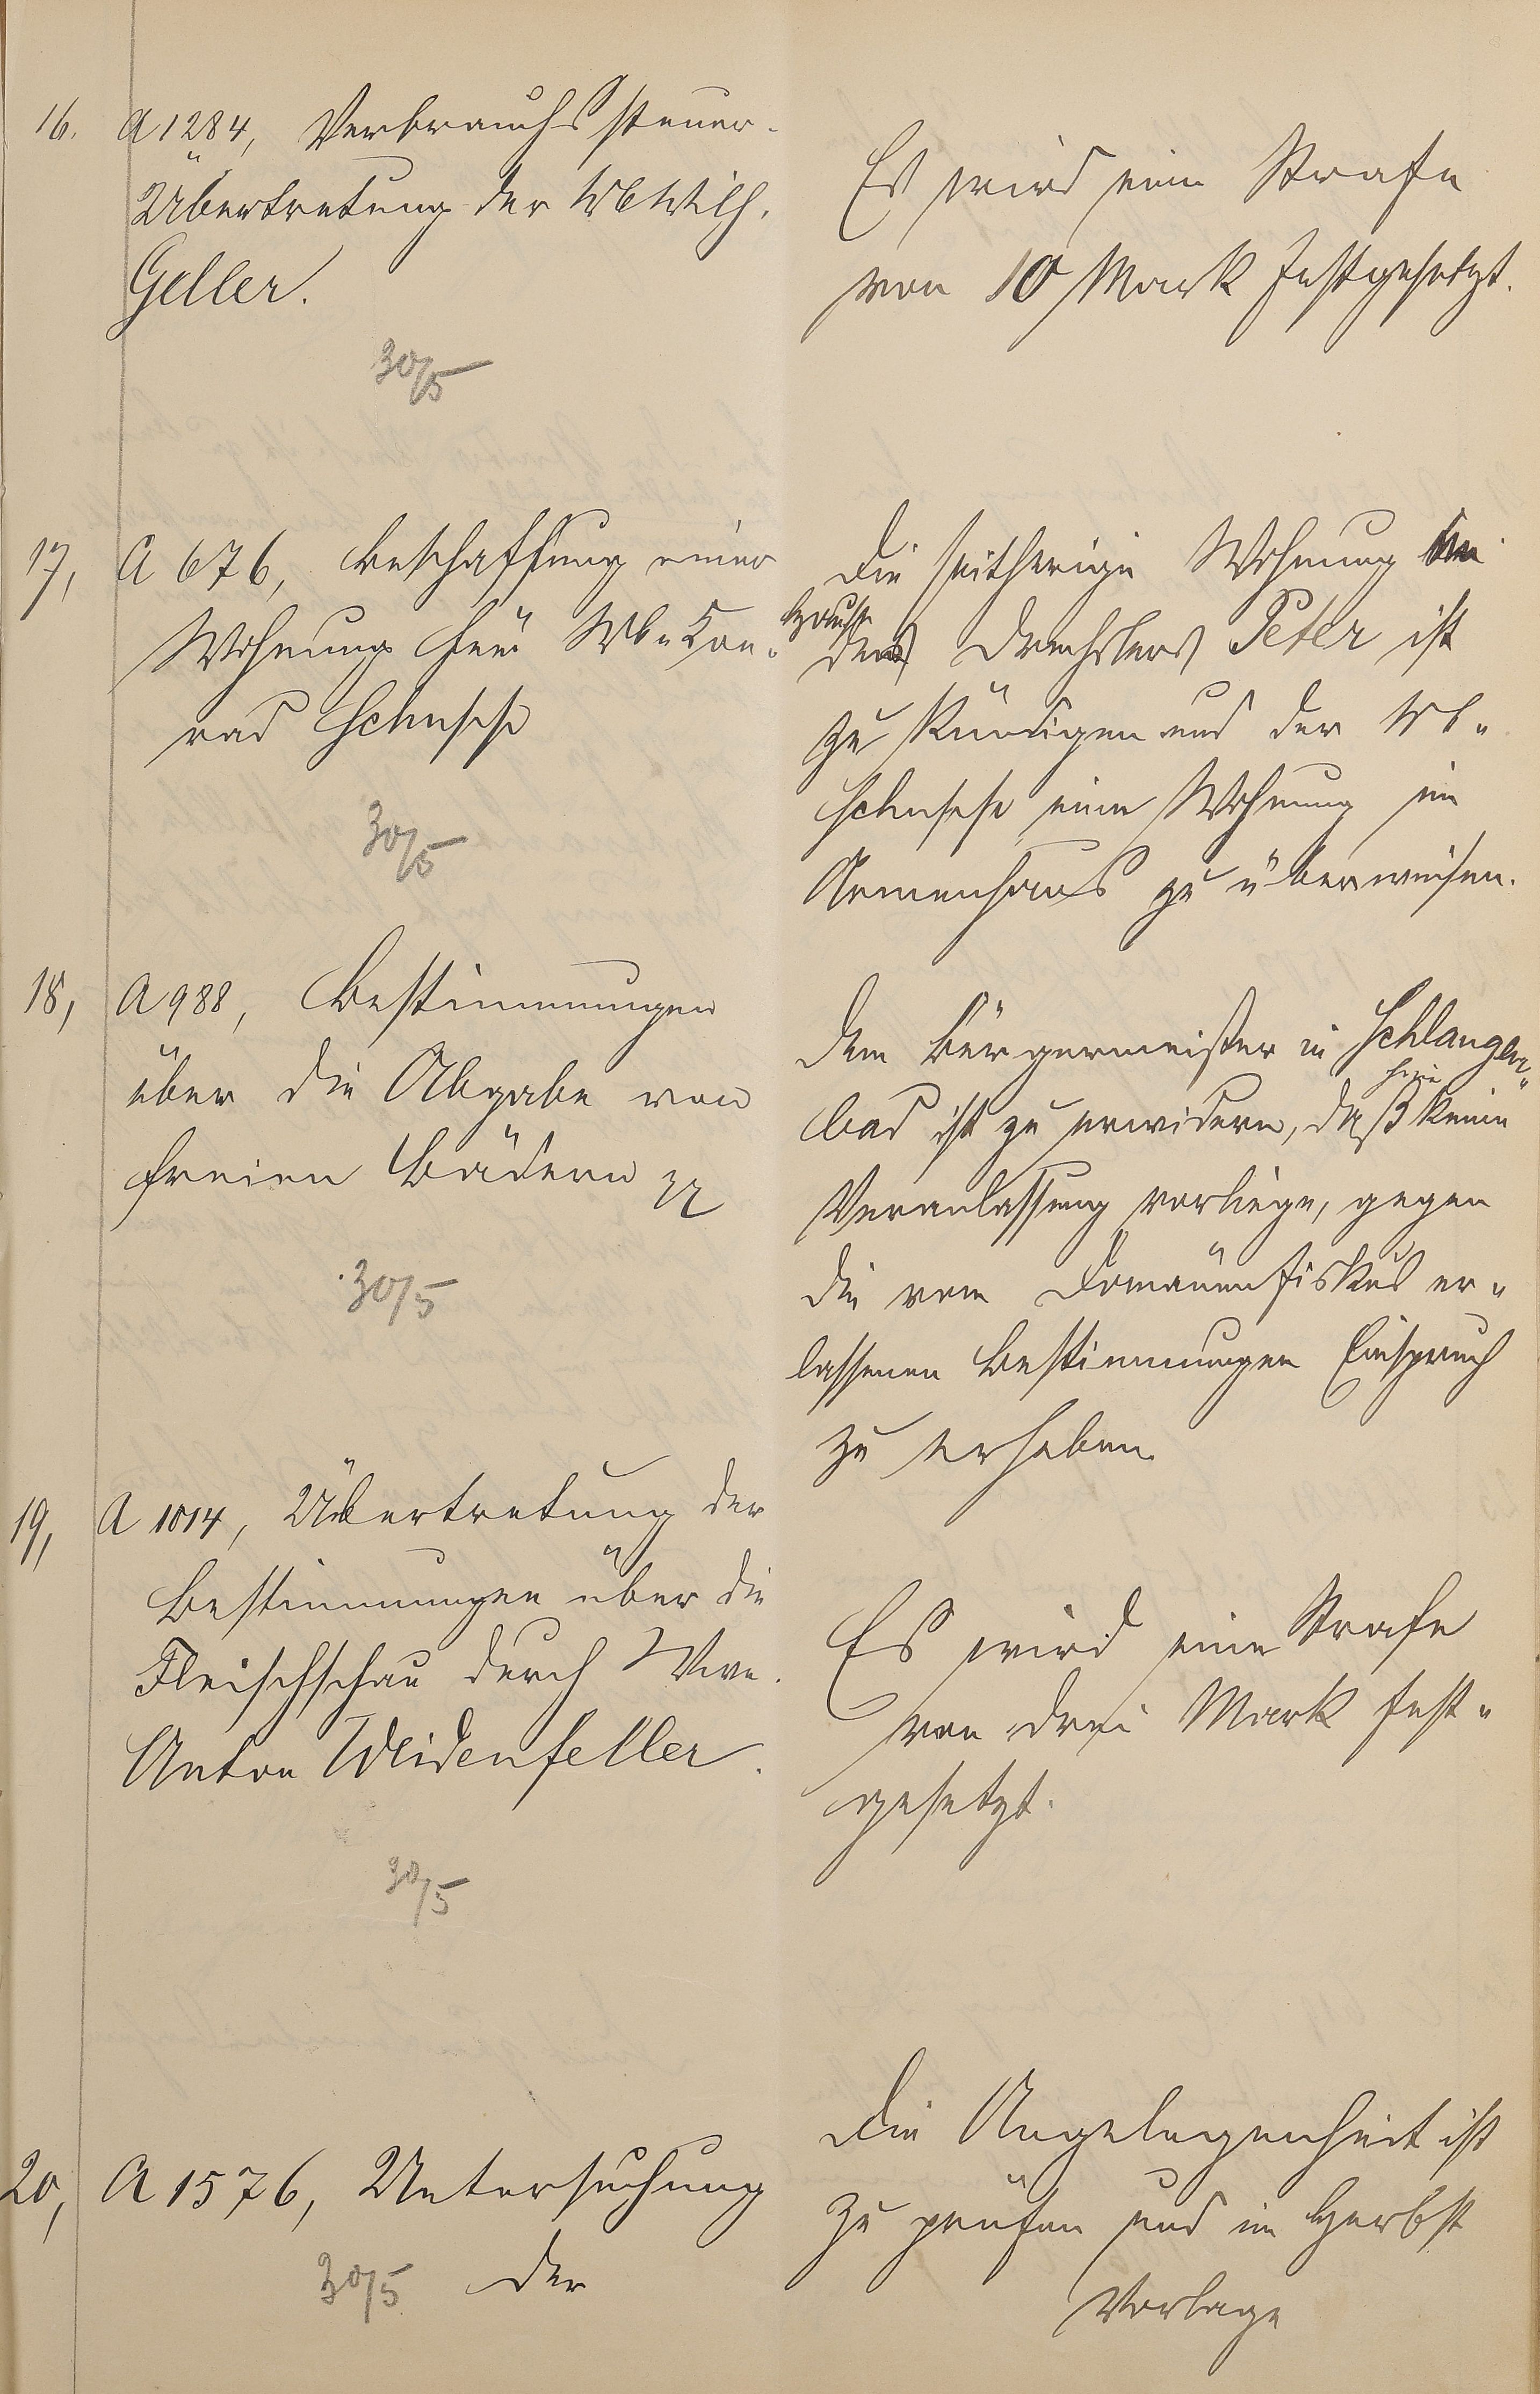 16. A 1284, Verbrauchssteuer-
Übertretung der Wb Wilh.
Geller.
30/5
Es wird eine Strafe
von 10 Mark festgesetzt.
17, A 676, Beschaffung einer
Wohnung für Wb. Con-
rad
30/5
Die seitherige Wohnung im
Hause
des Drechslers Peter ist
zu kündigen und der Wb.
eine Wohnung im
Armenhaus zu überweisen.
18, A 988, Bestimmungen
über die Abgabe von
freien Bädern pp
30/5
Dem Bürgermeister in Schlangen-
hier
bad ist zu erwidern, daß keine
Veranlassung vorliege, gegen
die vom Domänenfiskus er-
lassenen Bestimmungen Einspruch
zu erheben.
19, A 1014, Übertretung der
Bestimmungen über die
Fleischschau durch Wwe.
Anton Weidenfeller.
30/5
Es wird eine Strafe
von drei Mark fest-
gesetzt.
20, A 1576, Untersuchung
30/5 der
Die Angelegenheit ist
zu prüfen und im Herbst
Vorlage